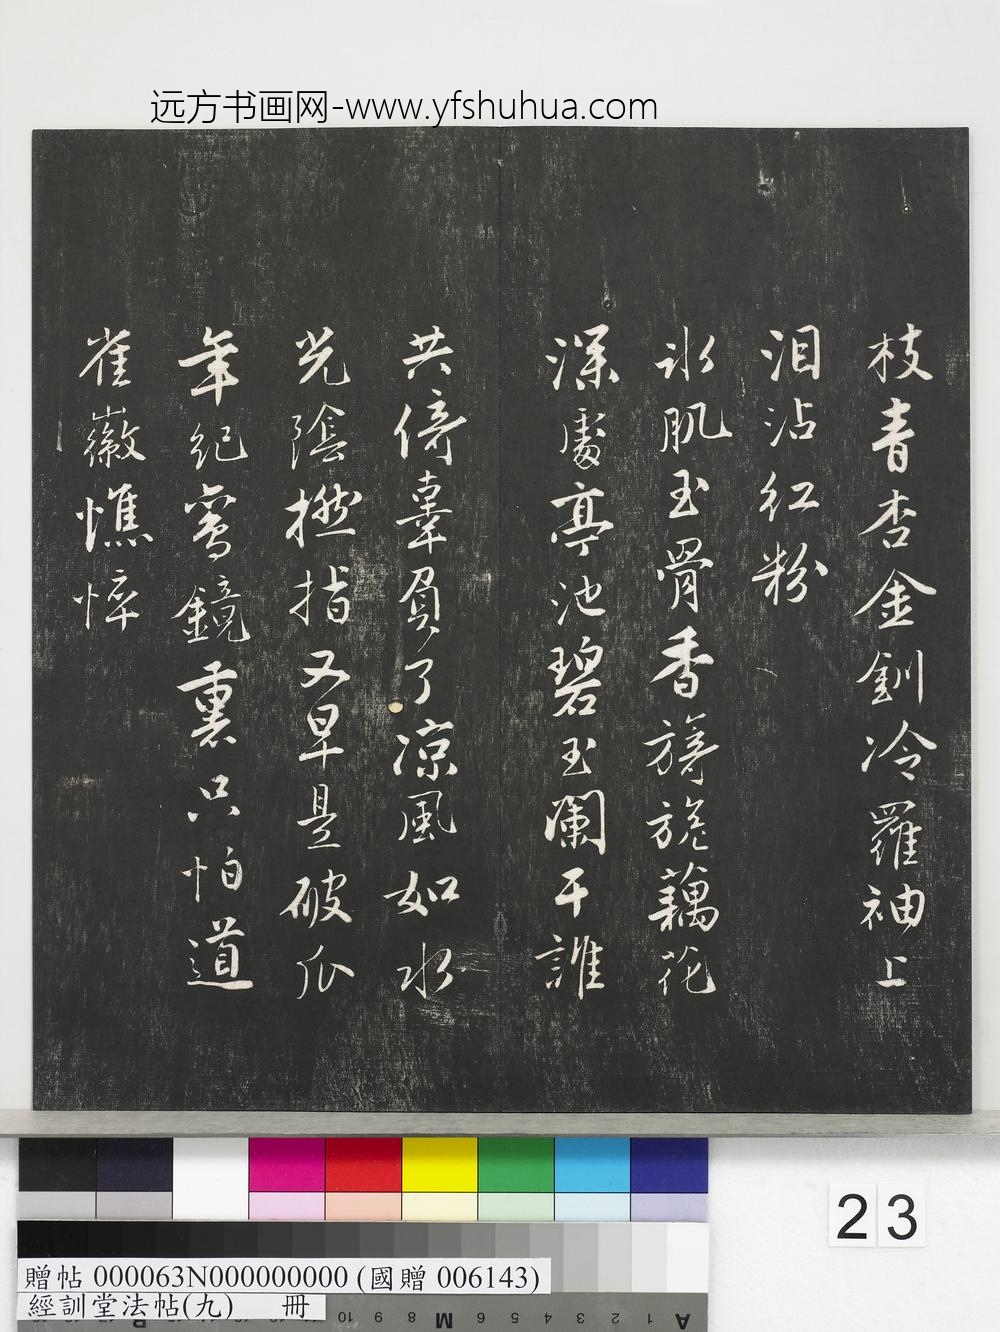 远方书画网-www.yfshuhua.com
枝青杏金釧冷羅袖上
泪沾红粉
冰肌玉骨香旖旎藕花
深處亭池碧玉闌干誰
共倚辜負了凉風如水
光陰撚指又早是破瓜
年紀鸞鏡裏只怕道
崔徽憔悴
23
贈帖 000063N000000000 (國贈 006143)
經訓堂法帖(九) 冊